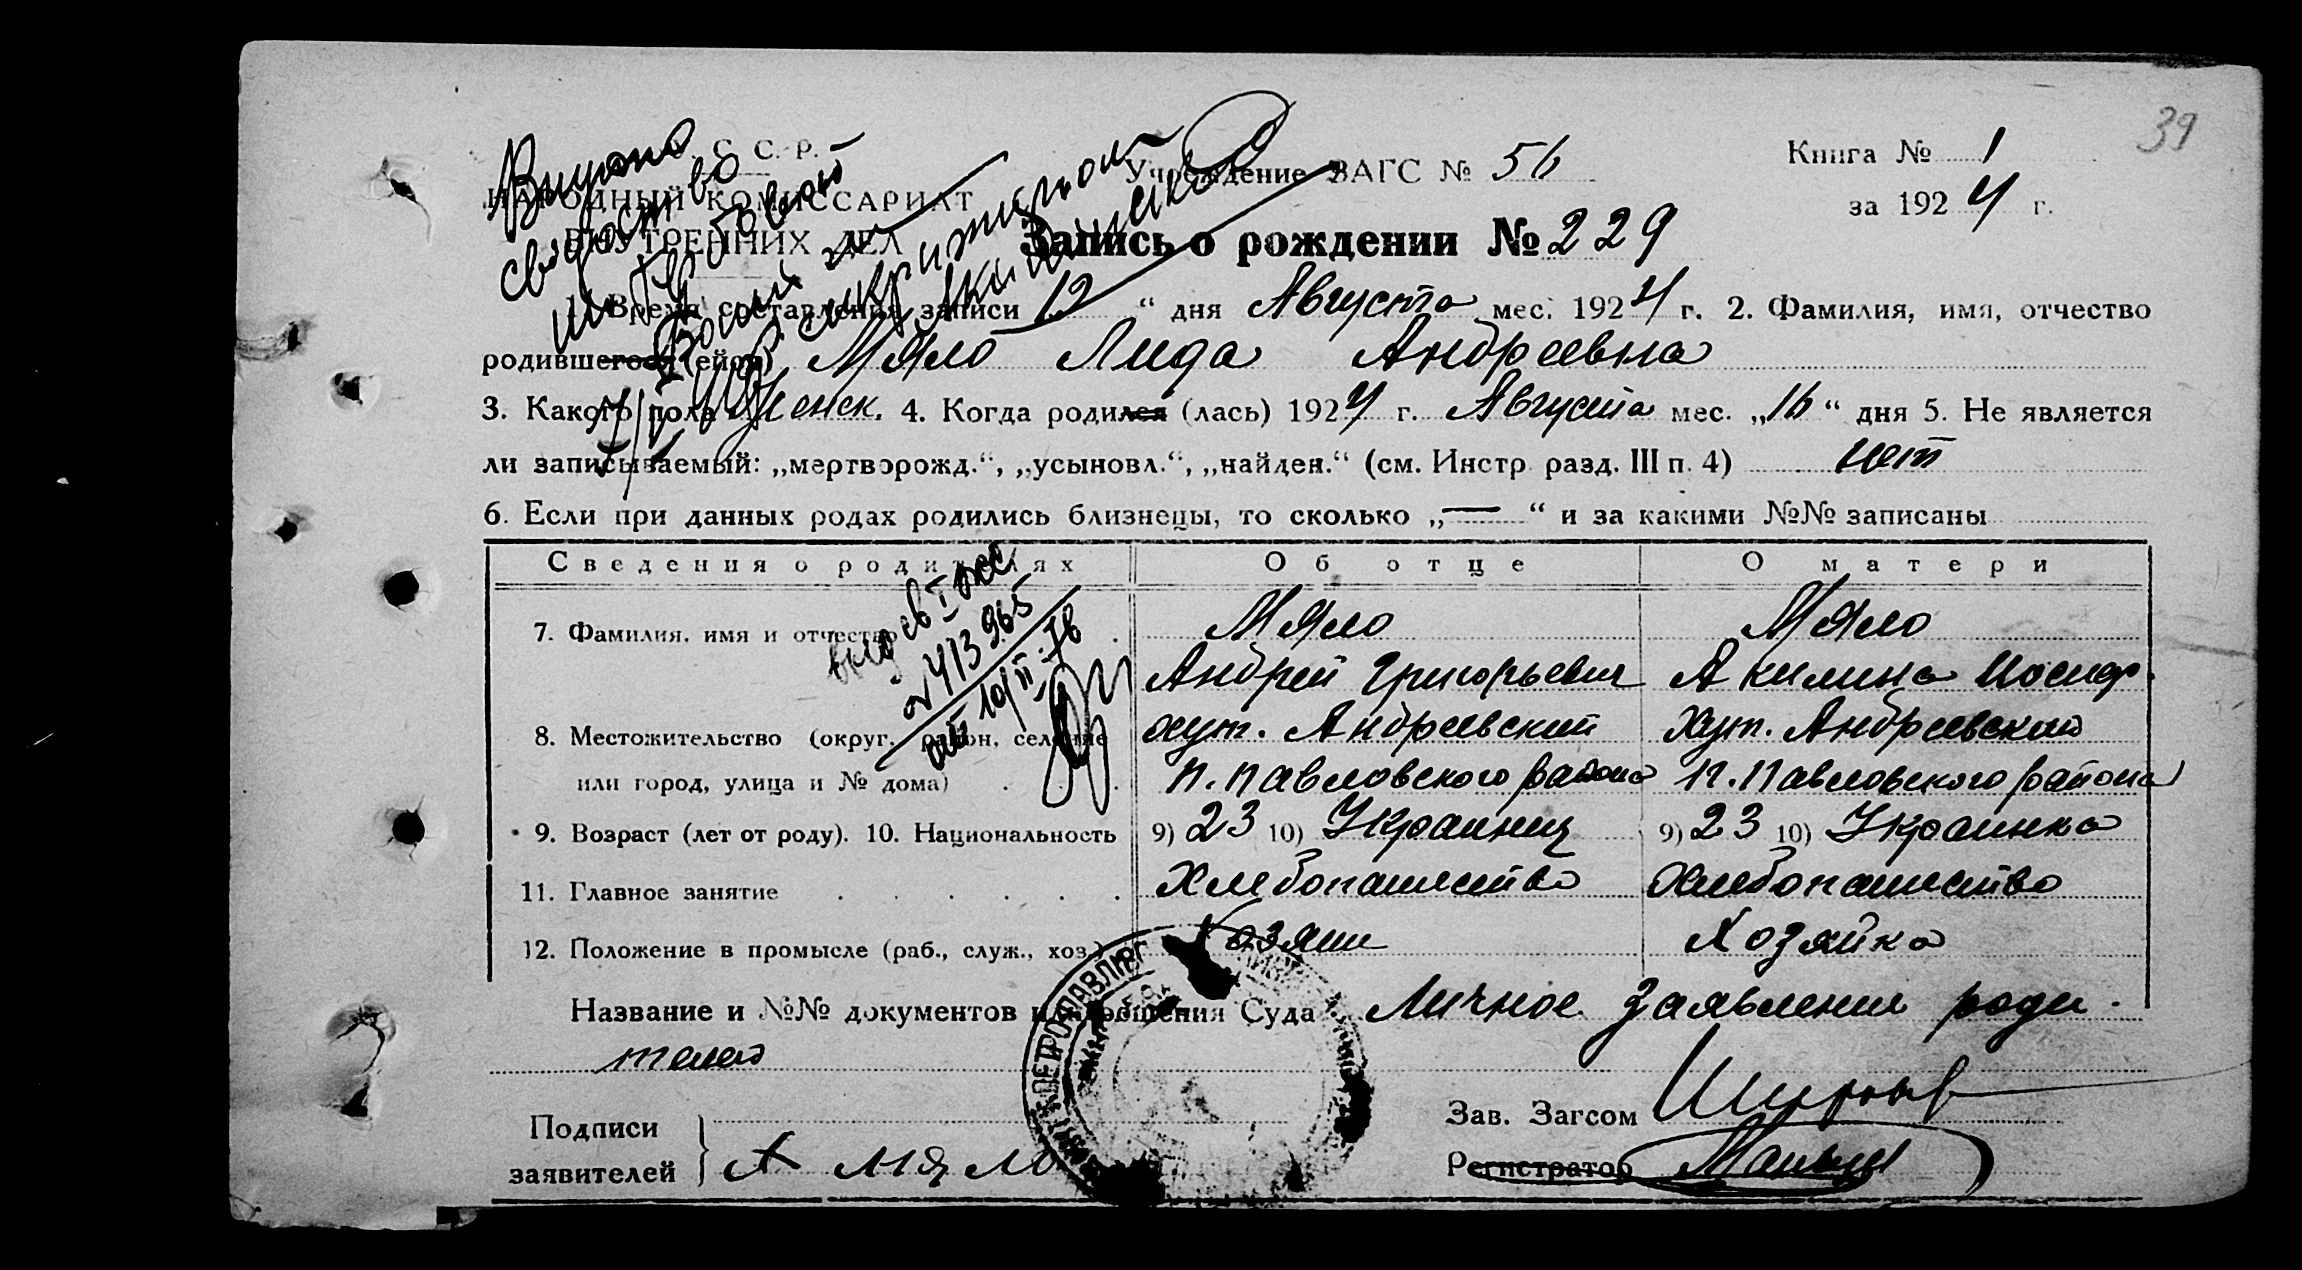 39
С. С. Р.
НАРОДНЫЙ КОМИССАРИАТ
ВНУТРЕННИХ ДЕЛ
Учреждение ЗАГС № 56
Книга № 1
за 1924 г.
Запись о рождении № 229
1. Время составления записи 12 “ дня Августа мес. 1924 г. 2. Фамилия, имя, отчество
родившегося (ейся) Мяло Лида Андреевна
3. Какого пола Женск. 4. Когда родился (лась) 1924 г. Августа мес. „16“ дня 5. Не является
ли записываемый: „мертворожд.“, „усыновл.“, „найден.“ (см. Инстр. разд. III п. 4) нет
6. Если при данных родах родились близнецы, то сколько „—“ и за какими №№ записаны
Сведения о родителях Об отце О матери
7. Фамилия, имя и отчество Мяло Мяло
Андрей Григорьевич Акилина Иосиф.
8. Местожительство (округ, район, селение хут. Андреевский хут. Андреевский
или город, улица и № дома) П. Павловского района П. Павловского района
9. Возраст (лет от роду). 10. Национальность 9) 23 10) Украинец 9) 23 10) Украинка
11. Главное занятие Хлебопашество Хлебопашество
12. Положение в промысле (раб., служ., хоз.) Хозяин Хозяйка
Название и №№ документов и решения Суда Личное Заявление роди
телей
Подписи
заявителей А Мяло
Зав. Загсом
Регистратор
413965
10/II-76